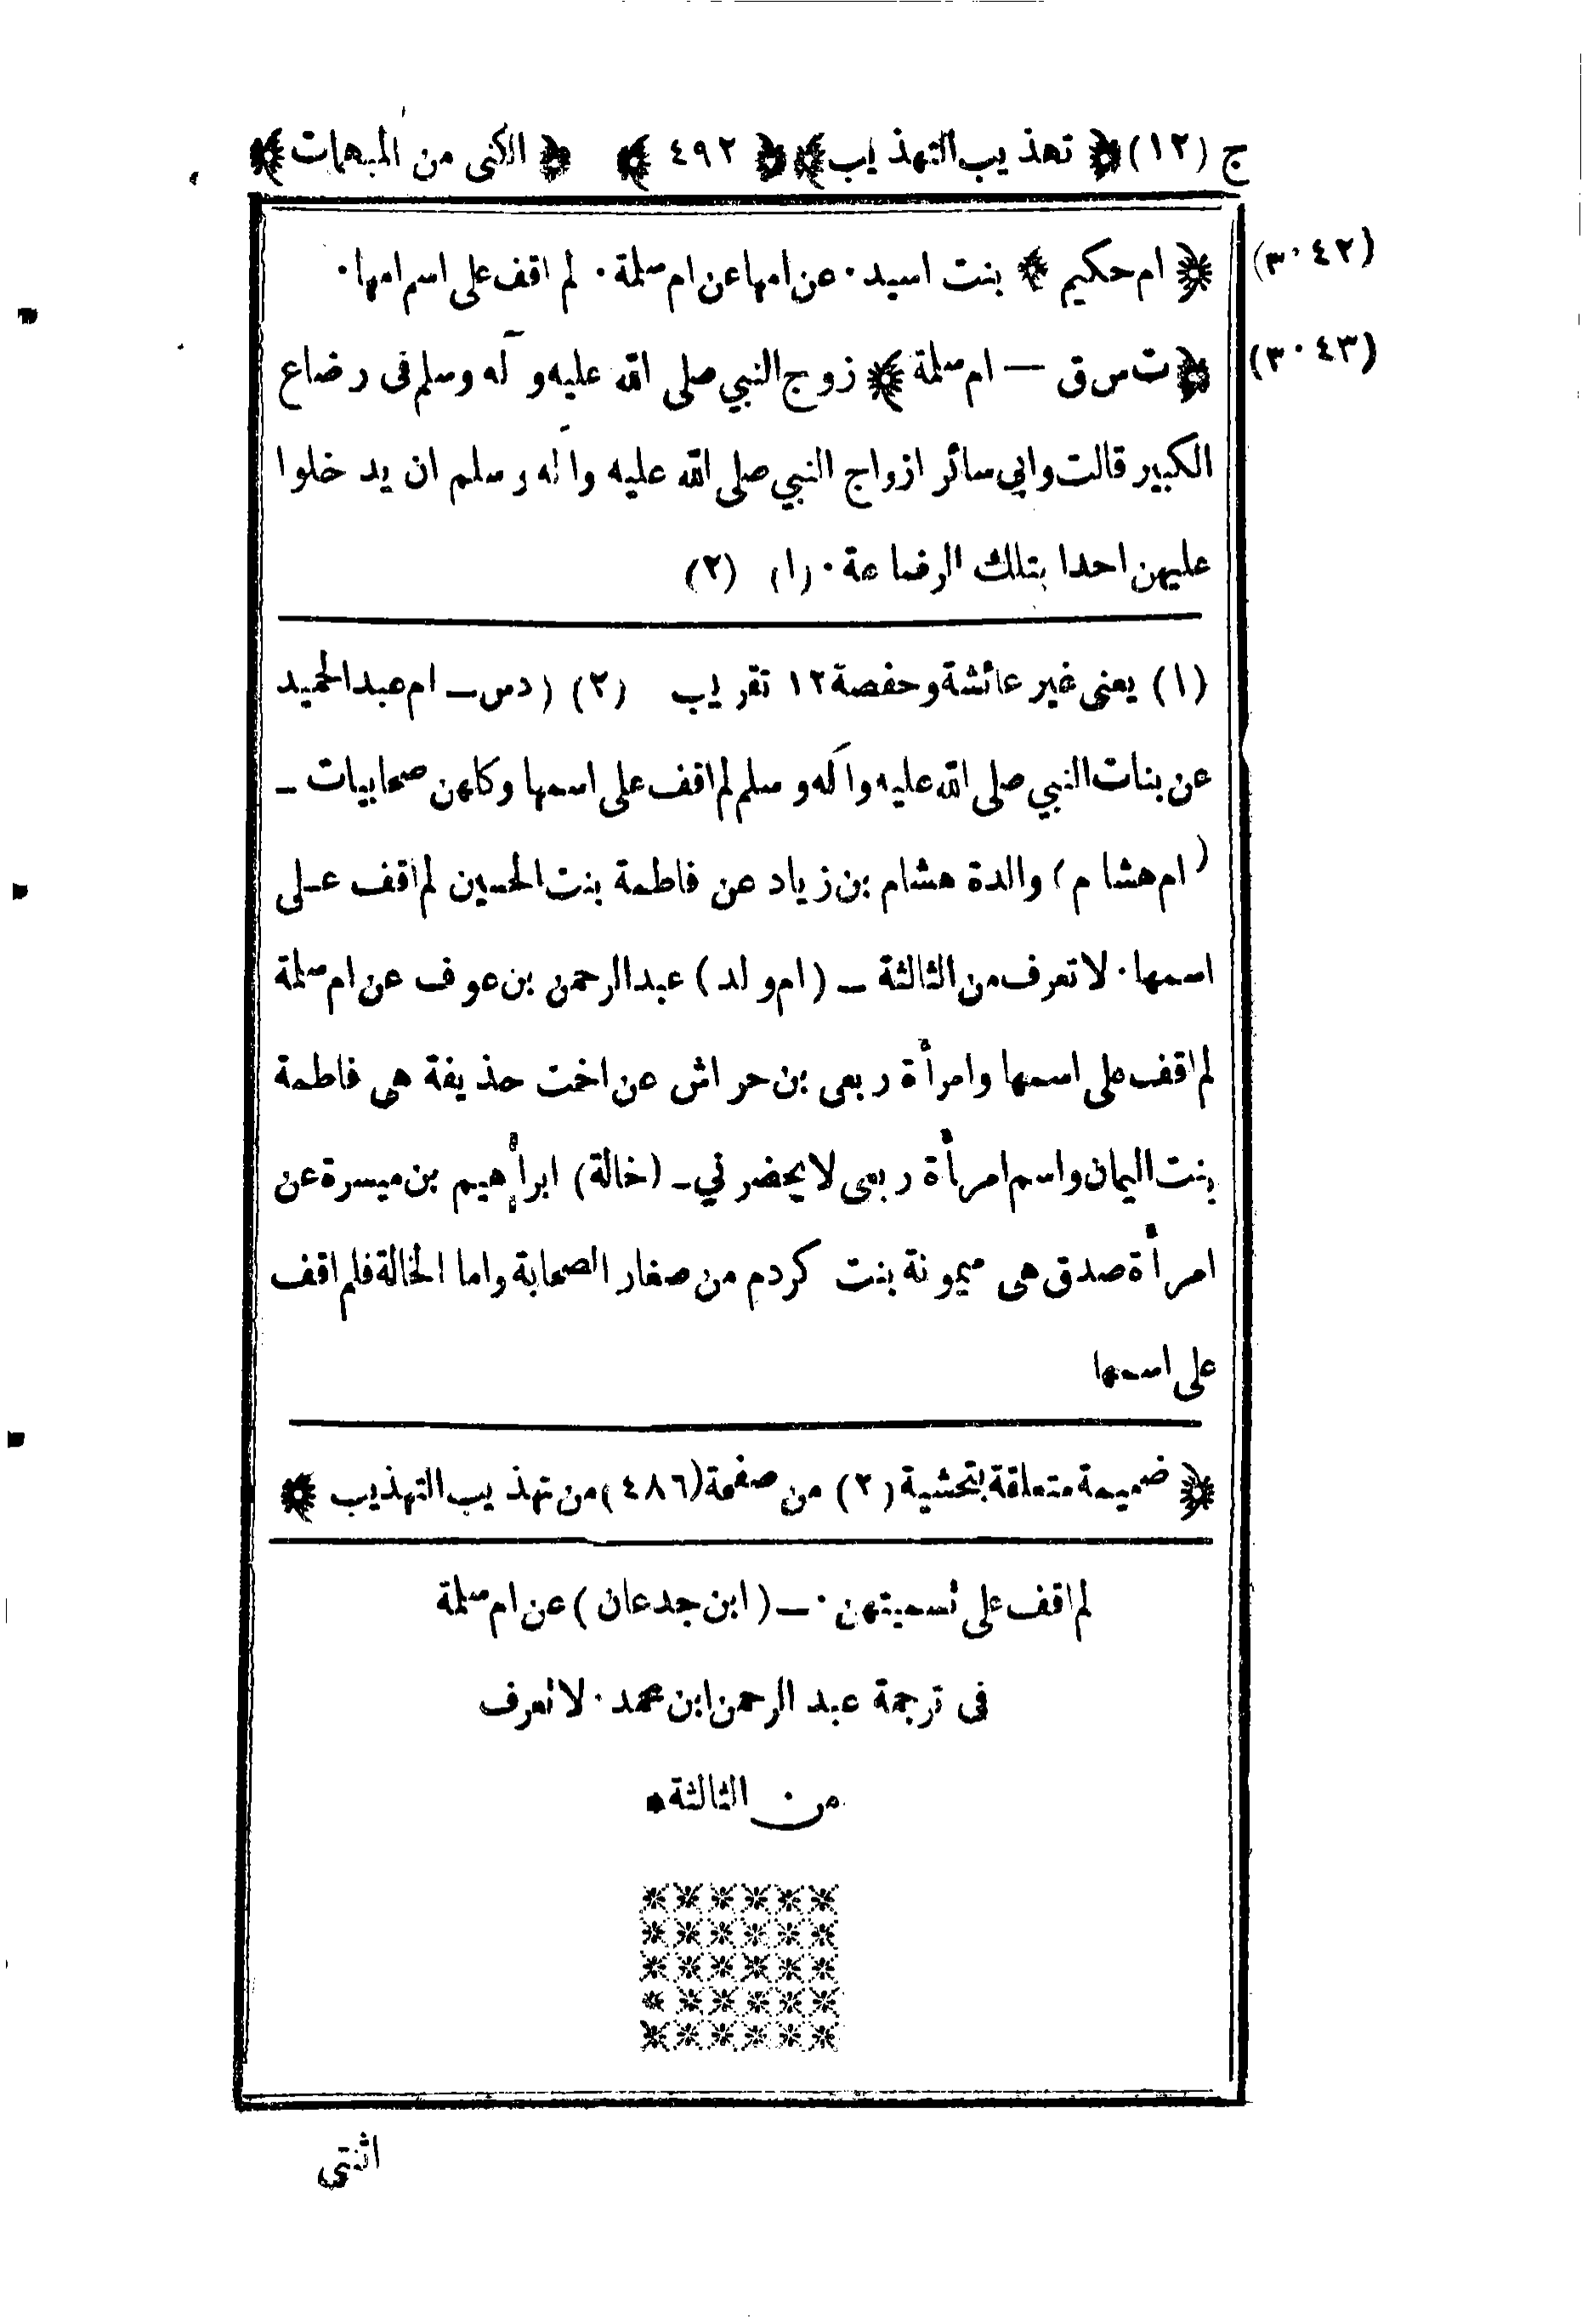 ج (١٢) ﴿ تهذيب التهذيب ﴾ ﴿ ٤٩٢ ﴾ ﴿ الكنى من المبهمات ﴾
(٣٠٤٢) ﴿ ام حكيم ﴾ بنت اسيد · عن امها عن ام سلمة · لم اقف على اسم امها ·
(٣٠٤٣) ﴿ ت س ق — ام سلمة ﴾ زوج النبي صلى الله عليه وآله وسلم فى رضاع
الكبير قالت وابى سائر ازواج النبي صلى الله عليه وآله وسلم ان يدخلوا
عليهن احدا بتلك الرضاعة · (١) (٢)
(١) يعنى غير عائشة وحفصة ١٢ تقريب (٢) (دس ــ ام عبد الحميد
عن بنات النبي صلى الله عليه وآله وسلم لم اقف على اسمها وكلهن صحابيات ــ
(ام هشام) والدة هشام بن زياد عن فاطمة بنت الحسين لم اقف على
اسمها · لا تعرف من الثالثة ــ (ام ولد) عبد الرحمن بن عوف عن ام سلمة
لم اقف على اسمها وامرأة ربعى بن حراش عن اخت حذيفة هى فاطمة
بنت اليمان واسم امرأة ربعى لا يحضرني ــ (خالة) ابرأهيم بن ميسرة عن
امرأة صدق هى ميمونة بنت كردم من صغار الصحابة واما الخالة فلم اقف
على اسمها
﴿ ضميمة متعلقة بتحشية (٢) من صفحة (٤٨٦) من تهذيب التهذيب ﴾
لم اقف على تسميتهن · ــ (ابن جدعان) عن ام سلمة
فى ترجمة عبد الرحمن ابن محمد · لا تعرف
من الثالثة
اثنتي